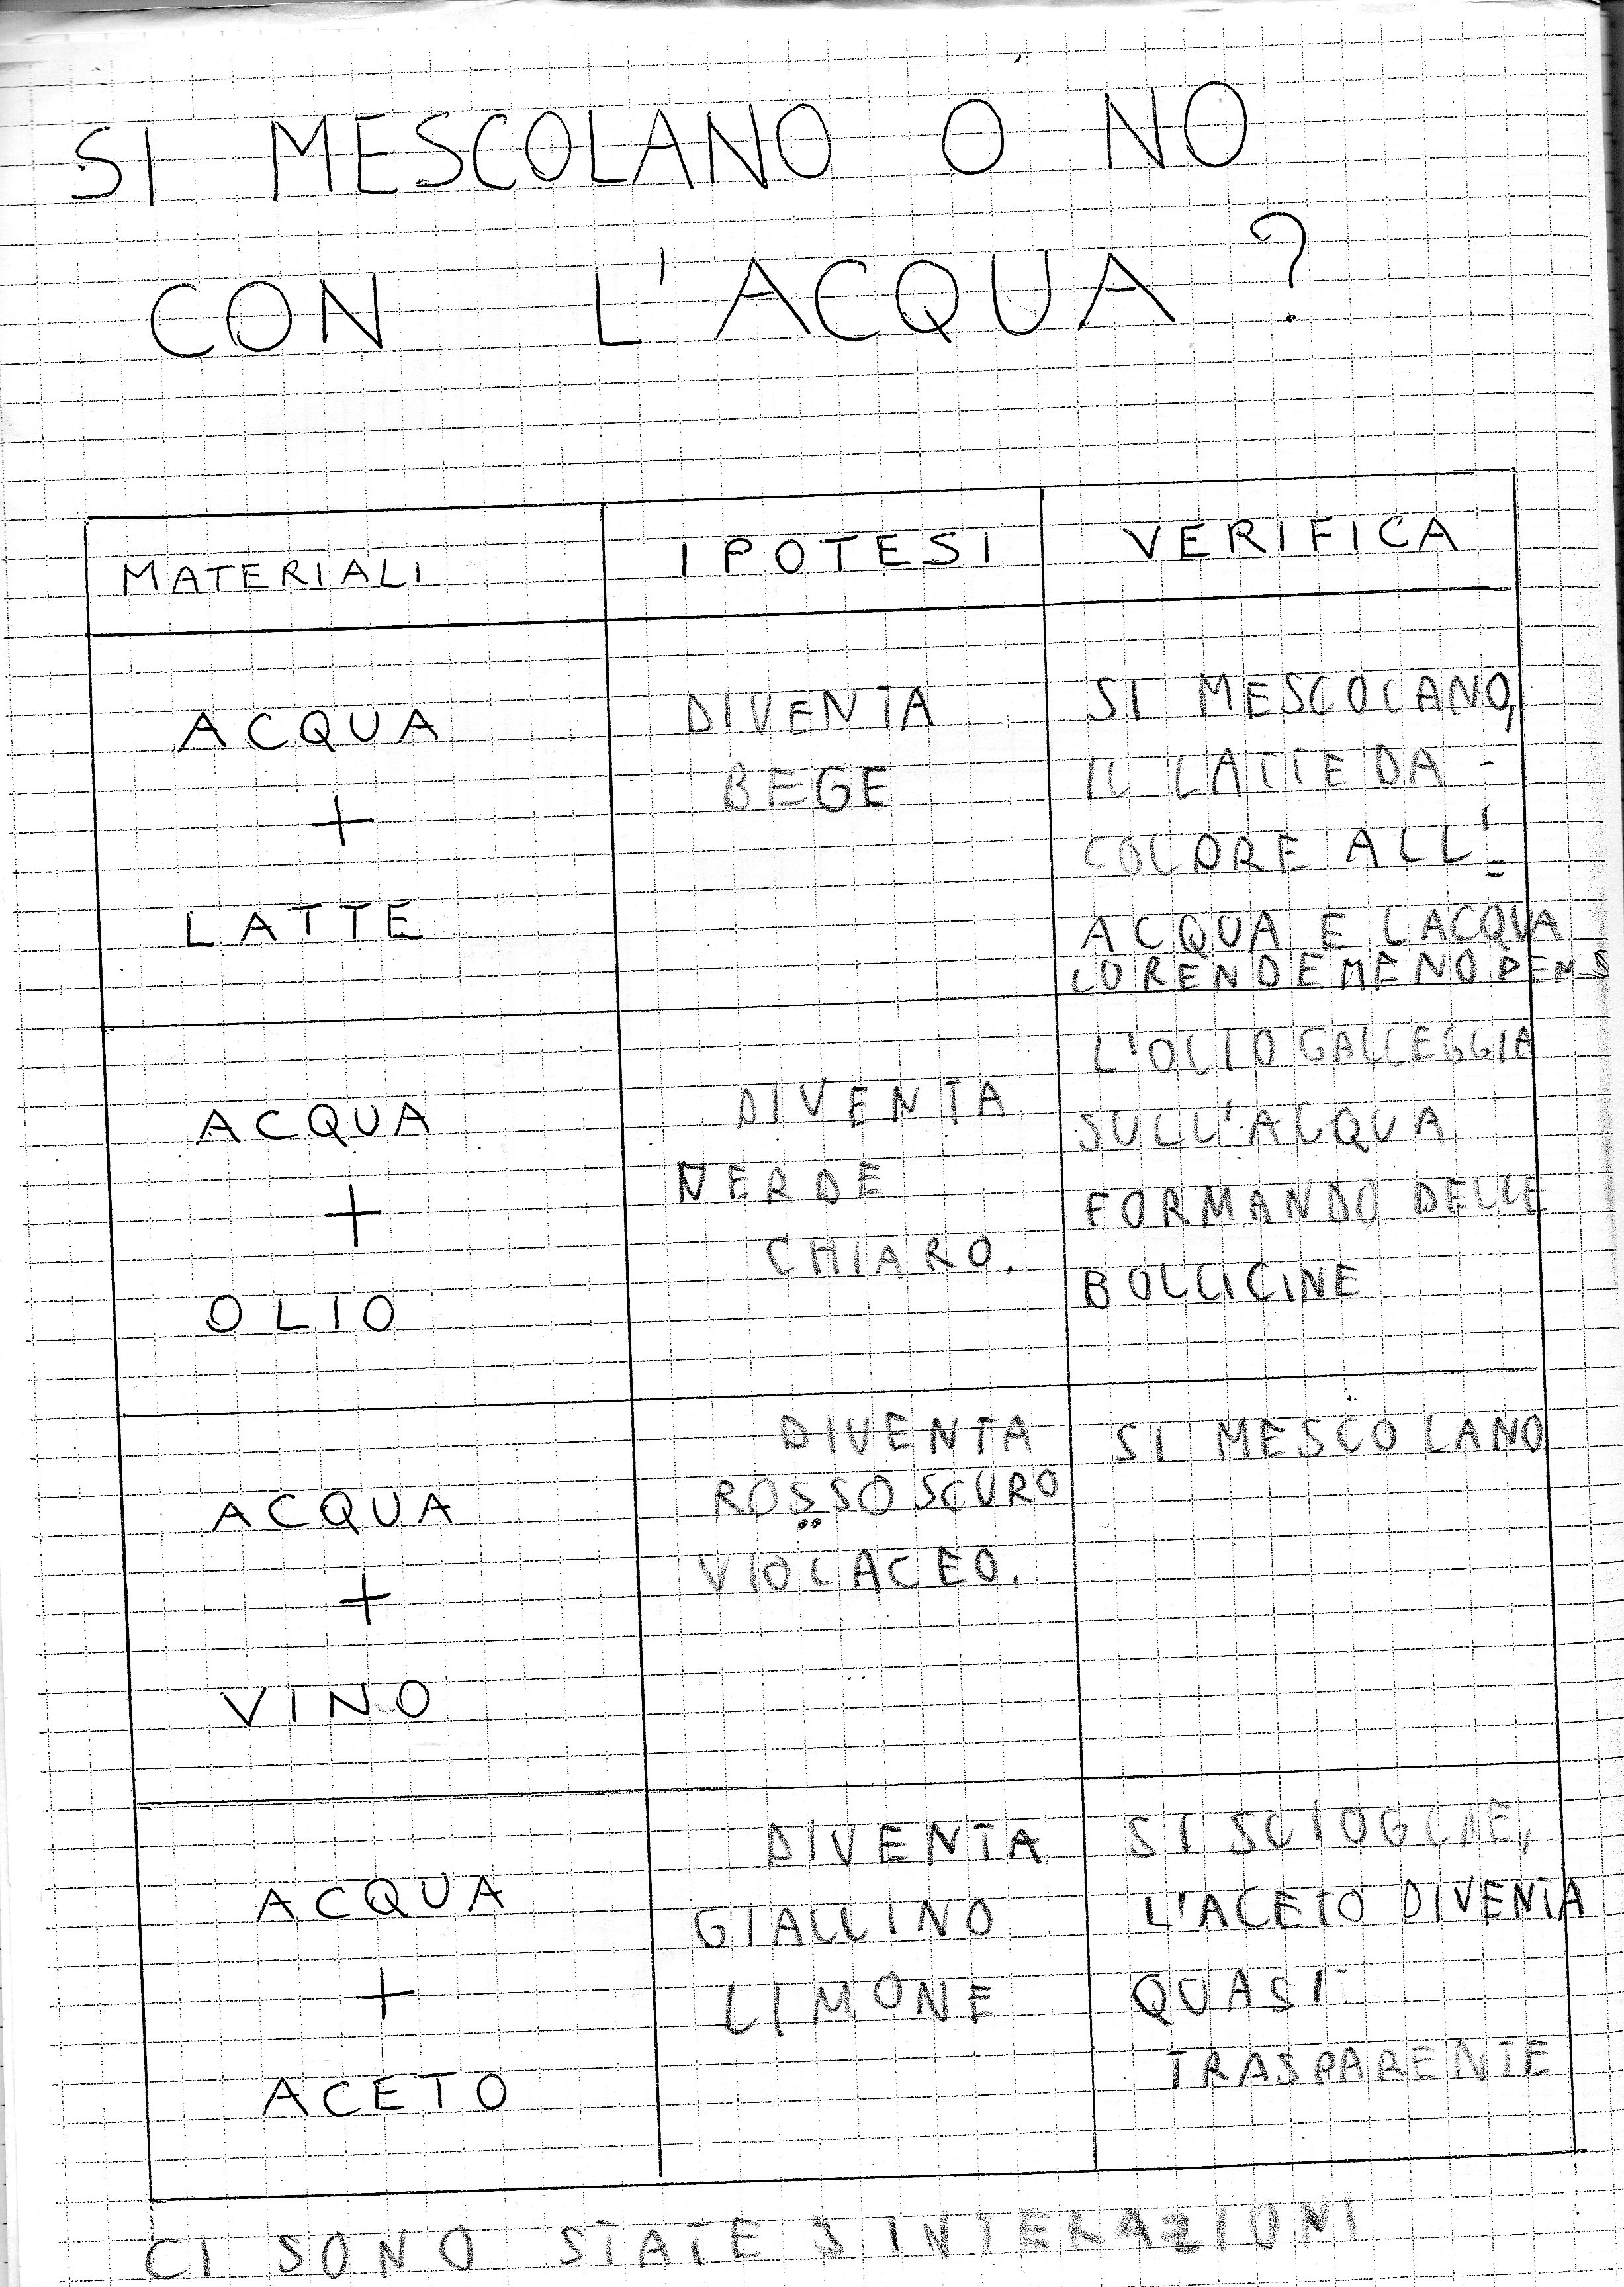 SI MESCOLANO O NO
CON L'ACQUA?
MATERIALI
IPOTESI
VERIFICA
ACQUA
+
LATTE
DIVENTA
BEGE
SI MESCOLANO,
IL LATTE DA -
COLORE ALL'-
ACQUA E LACQUA
LO RENDE MENO DENS
ACQUA
+
OLIO
DIVENTA
VERDE
CHIARO.
L'OLIO GALLEGGIA
SULL'ACQUA
FORMANDO DELLE
BOLLICINE
ACQUA
+
VINO
DIVENTA
ROSSO SCURO
VIOLACEO.
SI MESCOLANO
ACQUA
+
ACETO
DIVENTA
GIALLINO
LIMONE
SI SCIOGLIE,
L'ACETO DIVENTA
QUASI
TRASPARENTE
CI SONO STATE 3 INTERAZIONI